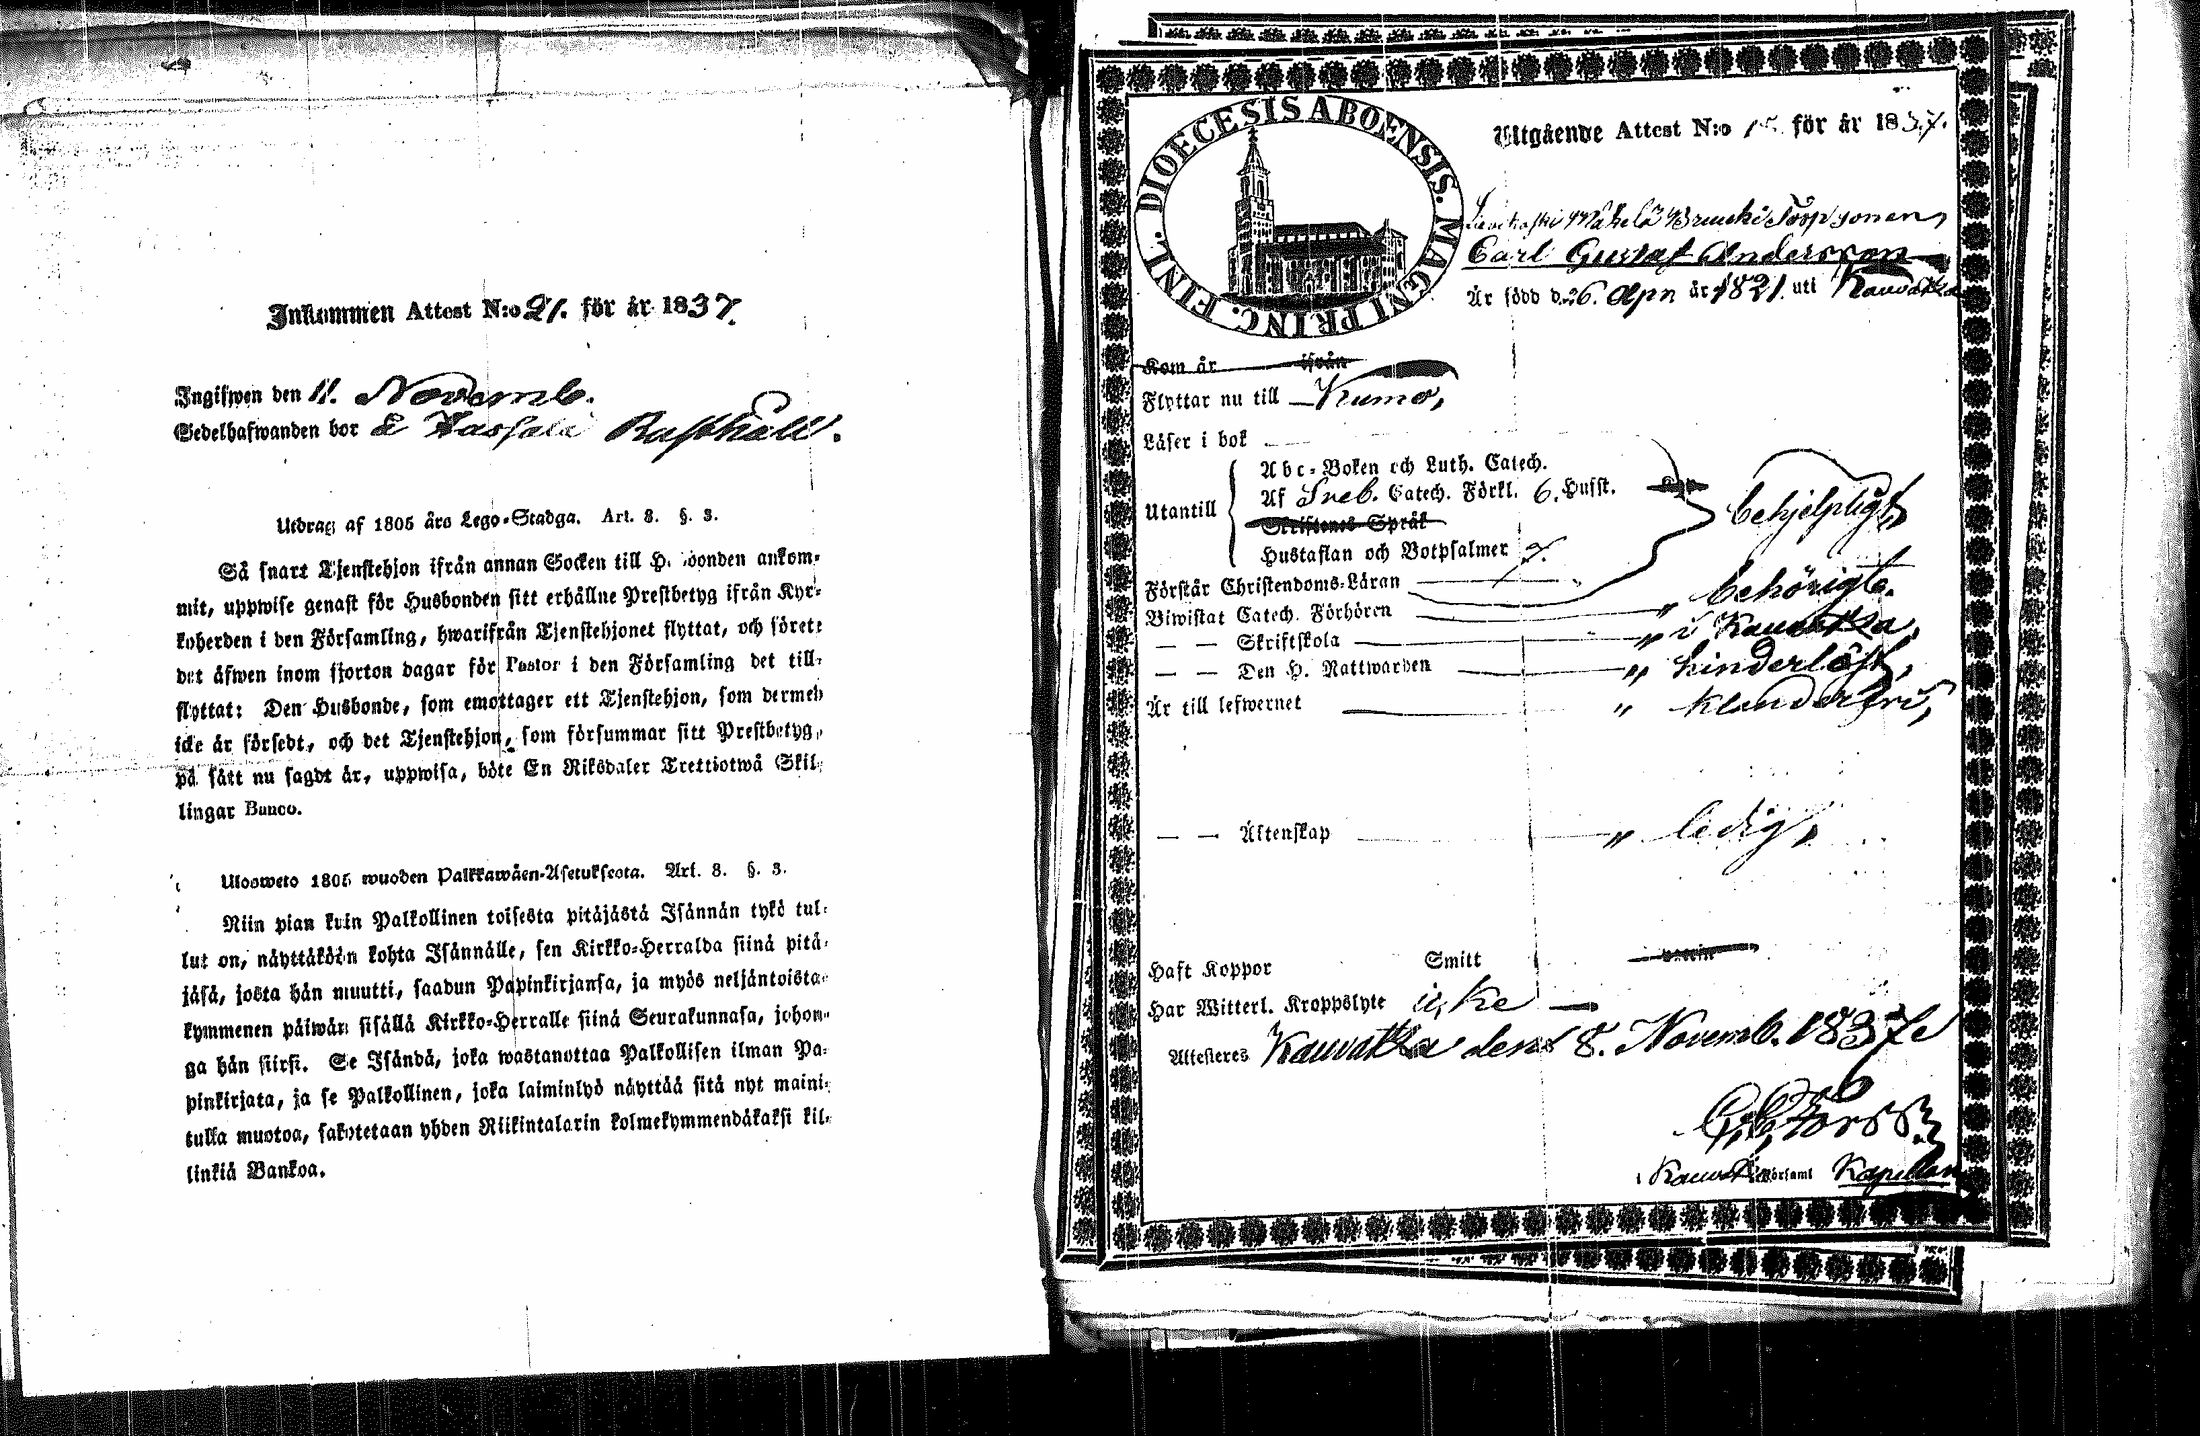 Inkommen Attest N:o 21. för år 1837.
Ingifwen den 11. Novemb.
Sedelhafwanden bor
Utdrag af 1805 års Lego-Stadga. Art. 8. §. 3.
Så snart Tjenstehjon ifrån annan Socken till H. bonden ankom-
mit, uppwise genast för Husbonden sitt erhållne Prestbetyg ifrån Kyr-
koherden i den Församling, hwarifrån Tjenstehjonet flyttat, och förete
det äfwen inom fjorton dagar för Pastor i den Församling det till-
flyttat: Den Husbonde, som emottager ett Tjenstehjon, som dermed
icke är försedt, och det Tjenstehjon, som försummar sitt Prestbetyg,
på sätt nu sagdt är, uppwisa, böte En Riksdaler Trettiotwå Skil-
lingar Banco.
Ulosweto 1805 wuoden Palkkawäen-Asetuksesta. Art. 8. §. 3.
Niin pian kuin Palkollinen toisesta pitäjästä Isännän tykö tul-
lut on, näyttäköön kohta Isännälle, sen Kirkko-Herralda siinä pitä-
jäsä, josta hän muutti, saadun Papinkirjansa, ja myös neljäntoista-
kymmenen päiwän sisällä Kirkko-Herralle siinä Seurakunnasa, johon-
ga hän siirsi. Se Isändä, joka wastanottaa Palkollisen ilman Pa-
pinkirjata, ja se Palkollinen, joka laiminlyö näyttää sitä nyt maini-
tulla muotoa, sakotetaan yhden Riikintalarin kolmekymmendäkaksi kil-
linkiä Bankoa.
DIOECESIS ABOENSIS. MAGNI PRINC. FINL.
Utgående Attest N:o för år 1837.
Mäkelä Torp sonen,
Carl Gustaf Andersson
Är född d. 26. Apr. år 1821. uti Kauvatsa
Kom år ifrån
Flyttar nu till Kumo,
Läser i bok
Abc-Boken och Luth. Catech.
Utantill Af Sveb. Catech. Förkl. 6. Hufst. behjelpligt,
Skriftenes Språk
Hustaflan och Botpsalmer
Förstår Christendoms-Läran
Biwistat Catech. Förhören " behörigt.
— — Skriftskola " i Kauvatsa,
— — Den H. Nattwarden " hinderlöst,
Är till lefwernet " klanderfri,
— — Äktenskap " ledig,
Haft Koppor Smitt
Har Witterl. Kroppslyte icke
Attesteres Kauvatsa den 8. Novemb. 1837
i Kauvatsa Församl Kapellan